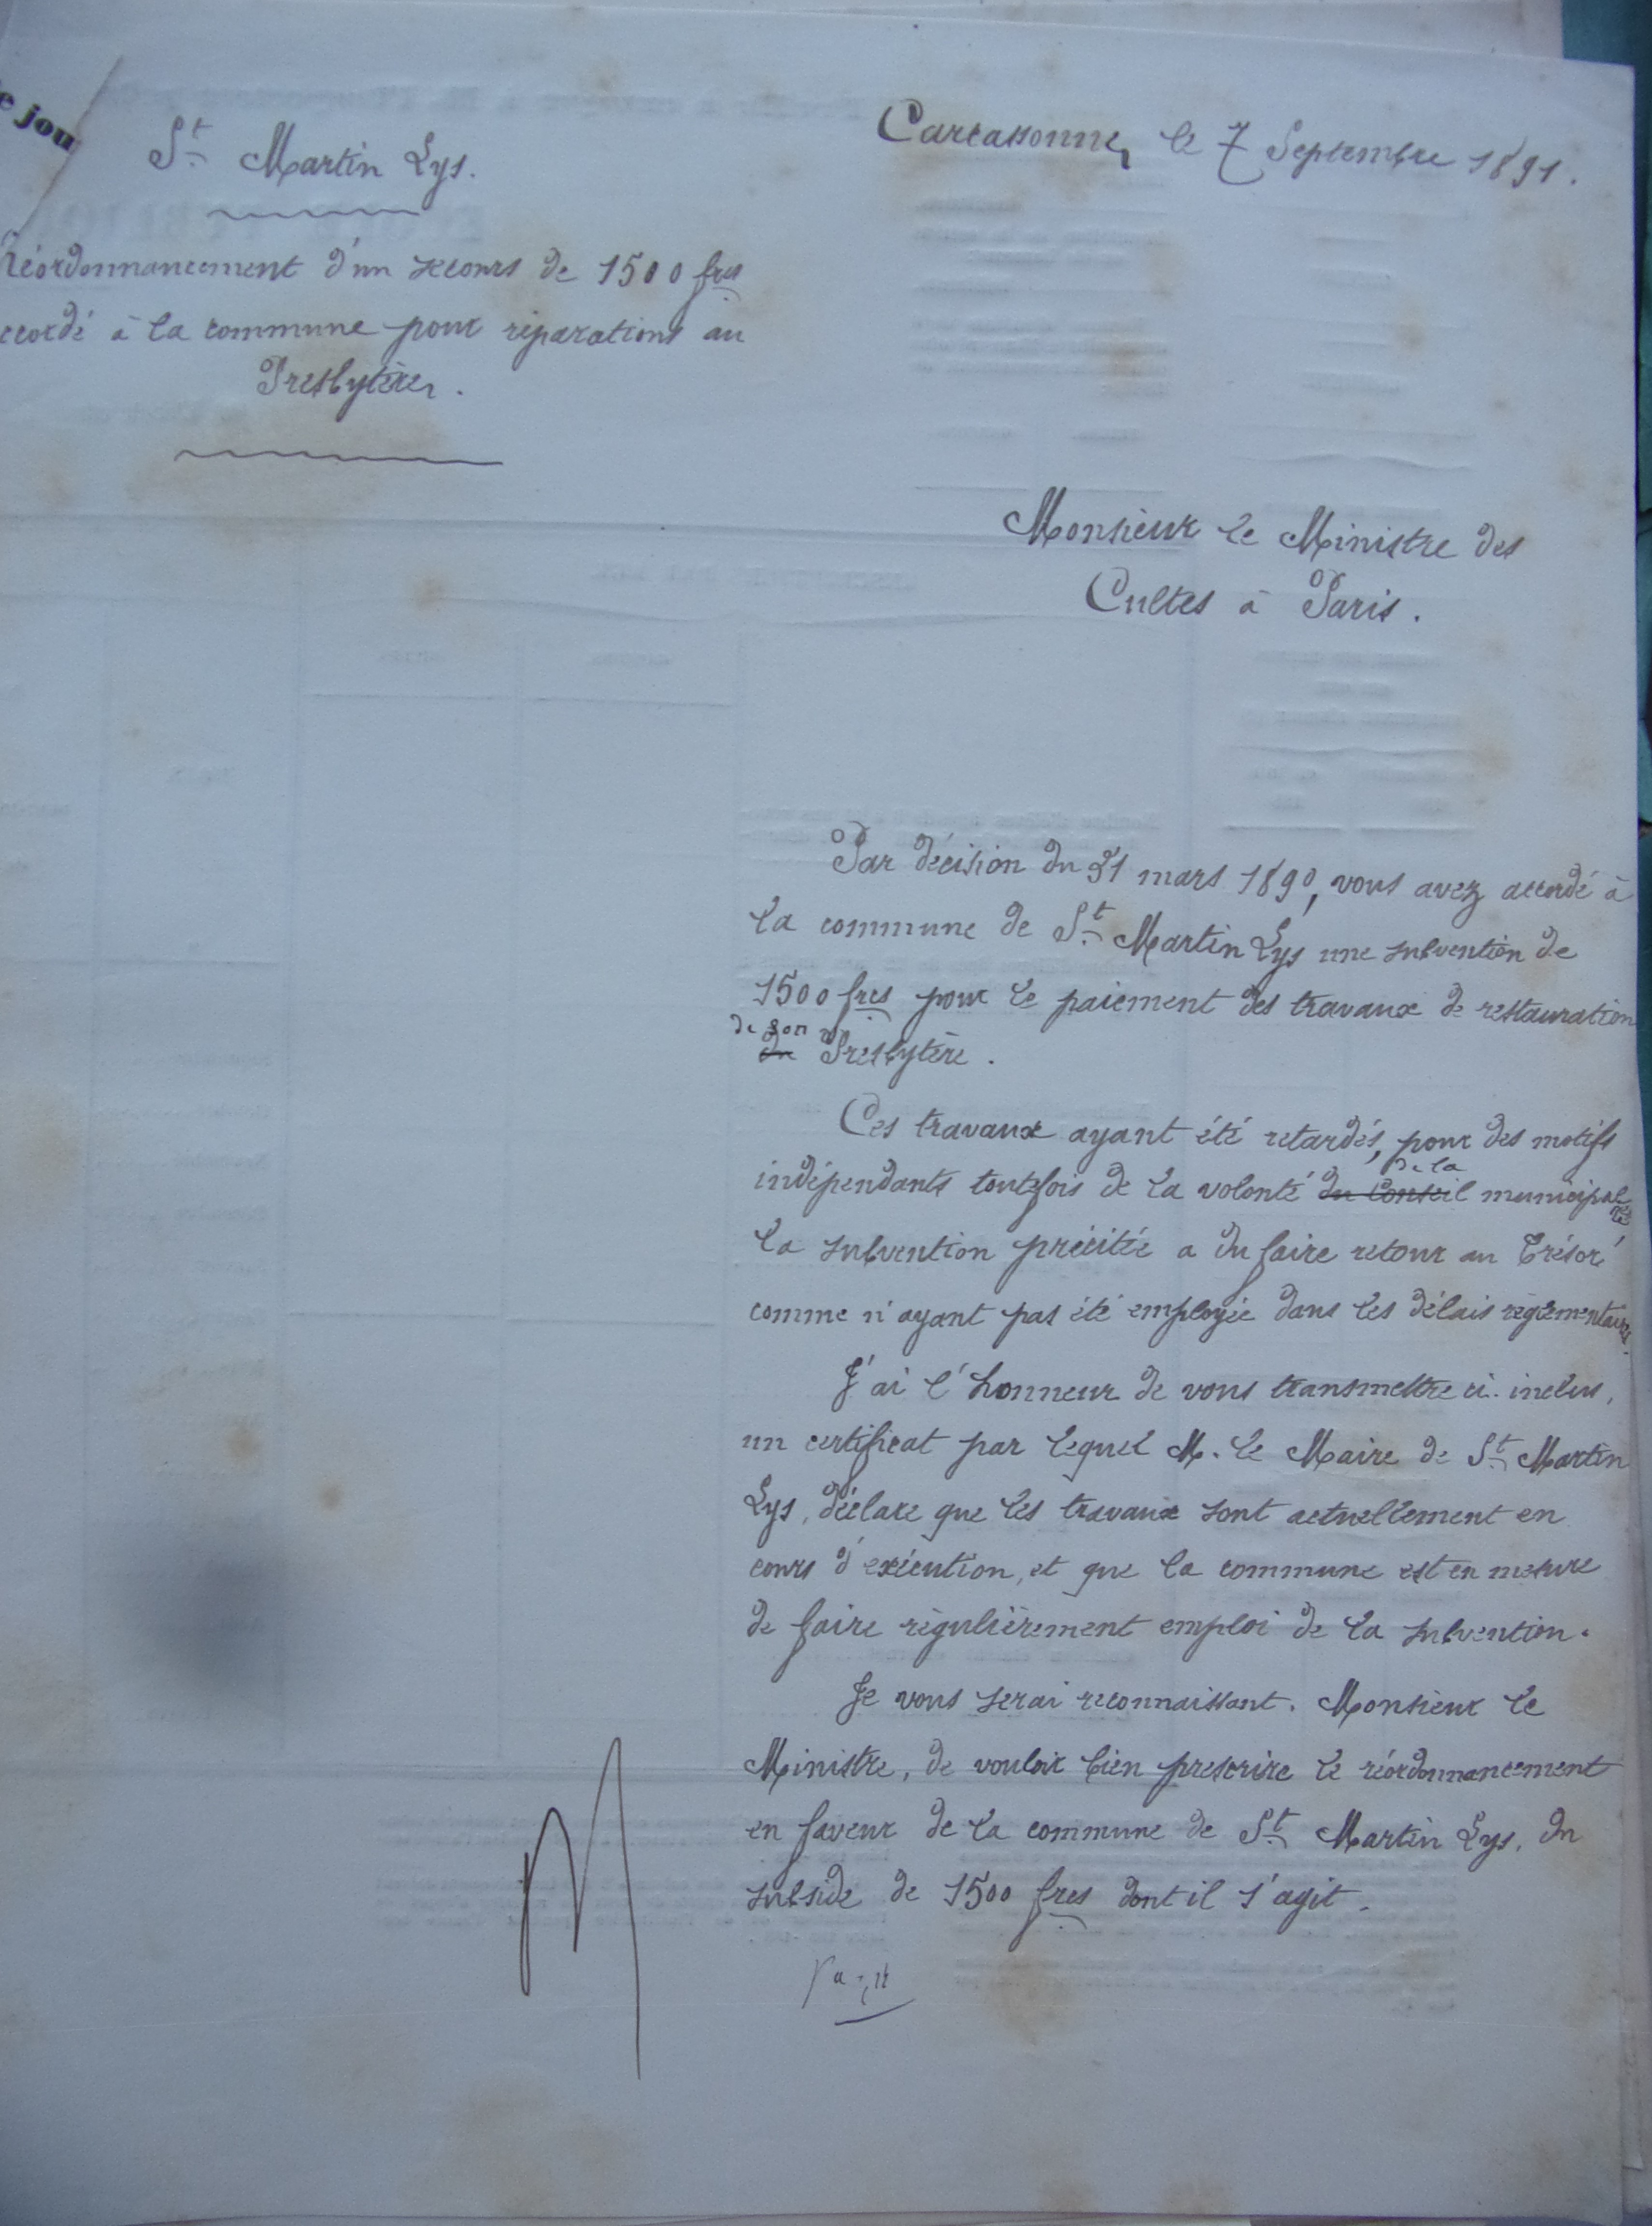 e jou
St Martin Lys.
Carcassonne, le 7 Septembre 1891.
Réordonnancement d'un secours de 1500 frcs
ccordé à la commune pour réparations au
Presbytère.
Monsieur le Ministre des
Cultes à Paris.
Par décision du 31 mars 1890, vous avez accordé à
la commune de St Martin Lys une subvention de
1500 frcs pour le paiement des travaux de restauration
de son
du Presbytère.
Ces travaux ayant été retardés, pour des motifs
de la
indépendants toutefois de la volonté du Conseil municipalité
la subvention précitée a du faire retour au Trésor
comme n'ayant pas été employée dans les délais réglementaires.
J'ai l'honneur de vous transmettre ci-inclus,
un certificat par lequel M. le Maire de St Martin
Lys, déclare que les travaux sont actuellement en
cours d'exécution, et que la commune est en mesure
de faire régulièrement emploi de la subvention.
Je vous serai reconnaissant, Monsieur le
Ministre, de vouloir bien prescrire le réordonnancement
en faveur de la commune de St Martin Lys, du
subside de 1500 frcs dont il s'agit.